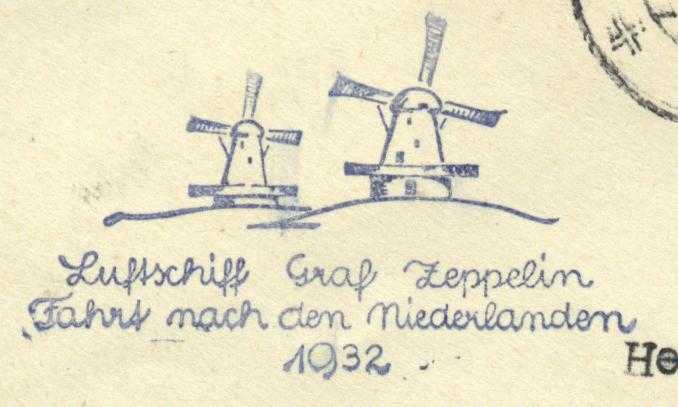 Luftschiff Graf Zeppelin
Fahrt nach den Niederlanden
1932